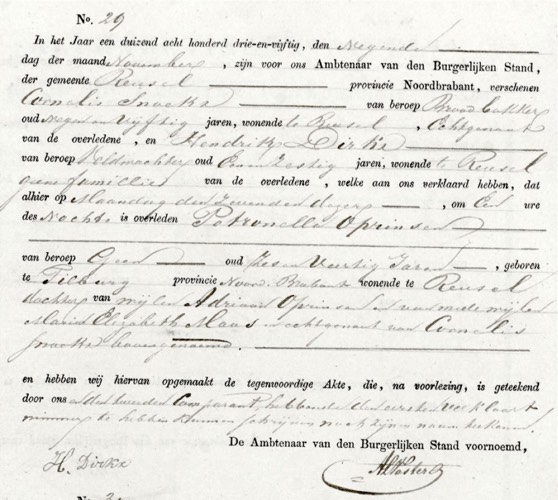 No. 29
In het Jaar een duizend acht honderd drie-en-vijftig, den Negende
dag der maand November, zijn voor ons Ambtenaar van den Burgerlijken Stand,
der gemeente Reusel provincie Noordbrabant, verschenen
Cornelis Snoeks van beroep Broodbakker
oud Negen en Vijftig jaren, wonende te Reusel, Echtgenoot
van de overledene, en Hendrik Dirkx
van beroep Veldwachter oud Een en Zestig jaren, wonende te Reusel
geene famillie van de overledene, welke aan ons verklaard hebben, dat
alhier op Maandag den Zevenden dezer, om Een ure
des Nachts is overleden Petronella Oprinsen
van beroep Geen oud Zes en Veertig Jaren, geboren
te Tilburg provincie Noord Brabant wonende te Reusel
dochter van wijlen Adriaan Oprinsen en van mede wijlen
Maria Elizabeth Maas en echtgenoot van Cornelis
Snoeks bovengenoemd.
en hebben wij hiervan opgemaakt de tegenwoordige Akte, die, na voorlezing, is geteekend
door ons en den tweeden Comparant, hebbende den eersten verklaart
te hebben schrijven naam
De Ambtenaar van den Burgerlijken Stand voornoemd,
H. Dirkx